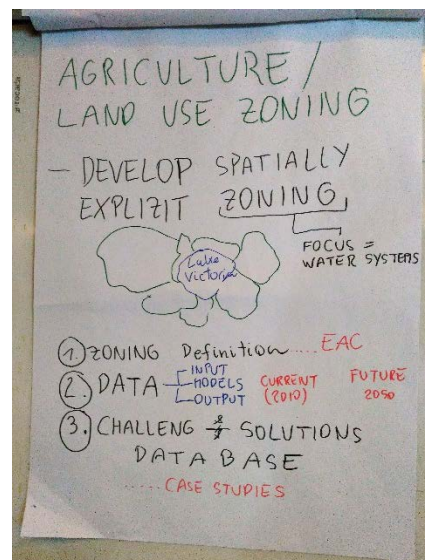 AGRICULTURE /
LAND USE ZONING
- DEVELOP SPATIALLY
EXPLIZIT ZONING
FOCUS =
WATER SYSTEMS
Lake
Victoria
1. ZONING Definition ..... EAC
2. DATA
INPUT
MODELS
OUTPUT
CURRENT
(2010)
FUTURE
2050
3. CHALLENG & SOLUTIONS
DATABASE
...... CASE STUDIES